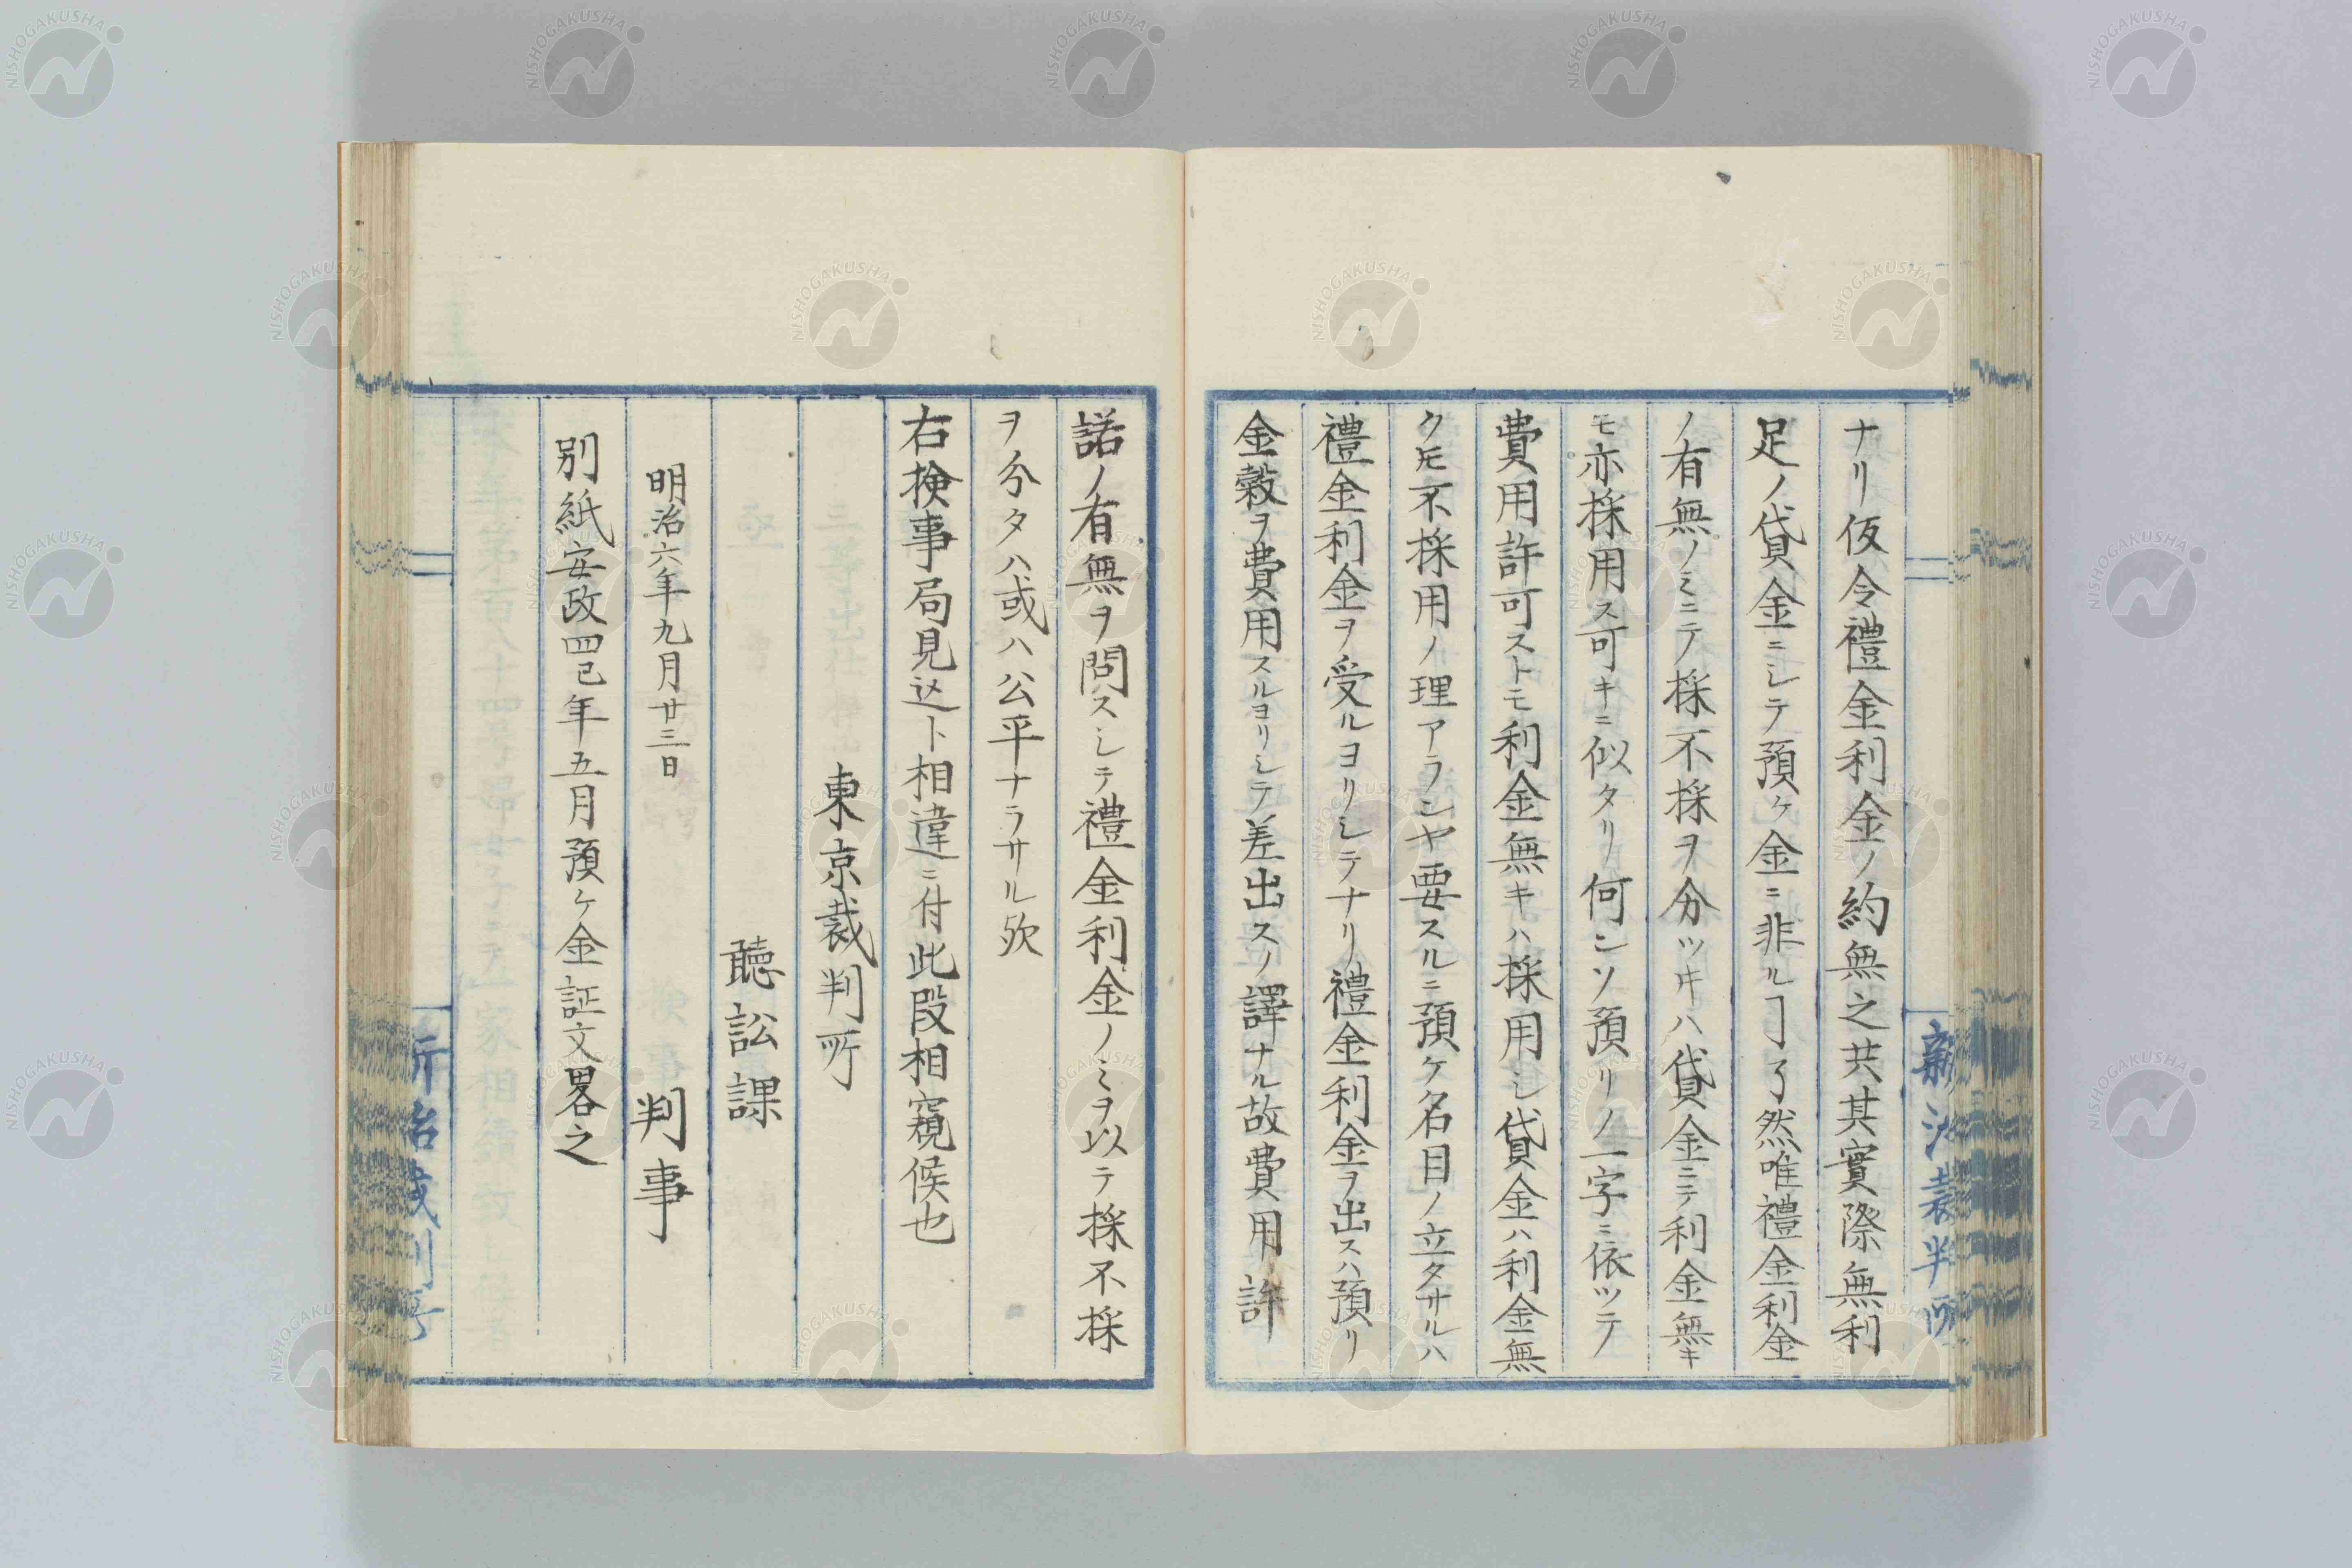 ナリ仮令禮金利金ノ約無之共其實際無利
足ノ貸金ニシテ預ケ金ニ非ルヿ了然唯禮金利金
ノ有無ノミニテ採不採ヲ分ツキハ貸金ニテ利金無キ
モ亦採用ス可キニ似タリ何ンソ預リノ一字ニ依ツテ
費用許可ストモ利金無キハ採用シ貸金ハ利金無
クモ不採用ノ理アランヤ要スルニ預ケ名目ノ立タサルハ
禮金利金ヲ受ルヨリシテナリ禮金利金ヲ出スハ預リ
金穀ヲ費用スルヨリシテ差出スノ譯ナル故費用許
諾ノ有無ヲ問スシテ禮金利金ノミヲ以テ採不採
ヲ分タハ或ハ公平ナラサル欤
右検事局見込ト相違ニ付此段相窺候也
東京裁判所
聽訟課
明治六年九月廿三日 判事
別紙安政四巳年五月預ケ金証文畧之
NISHOGAKUSHA